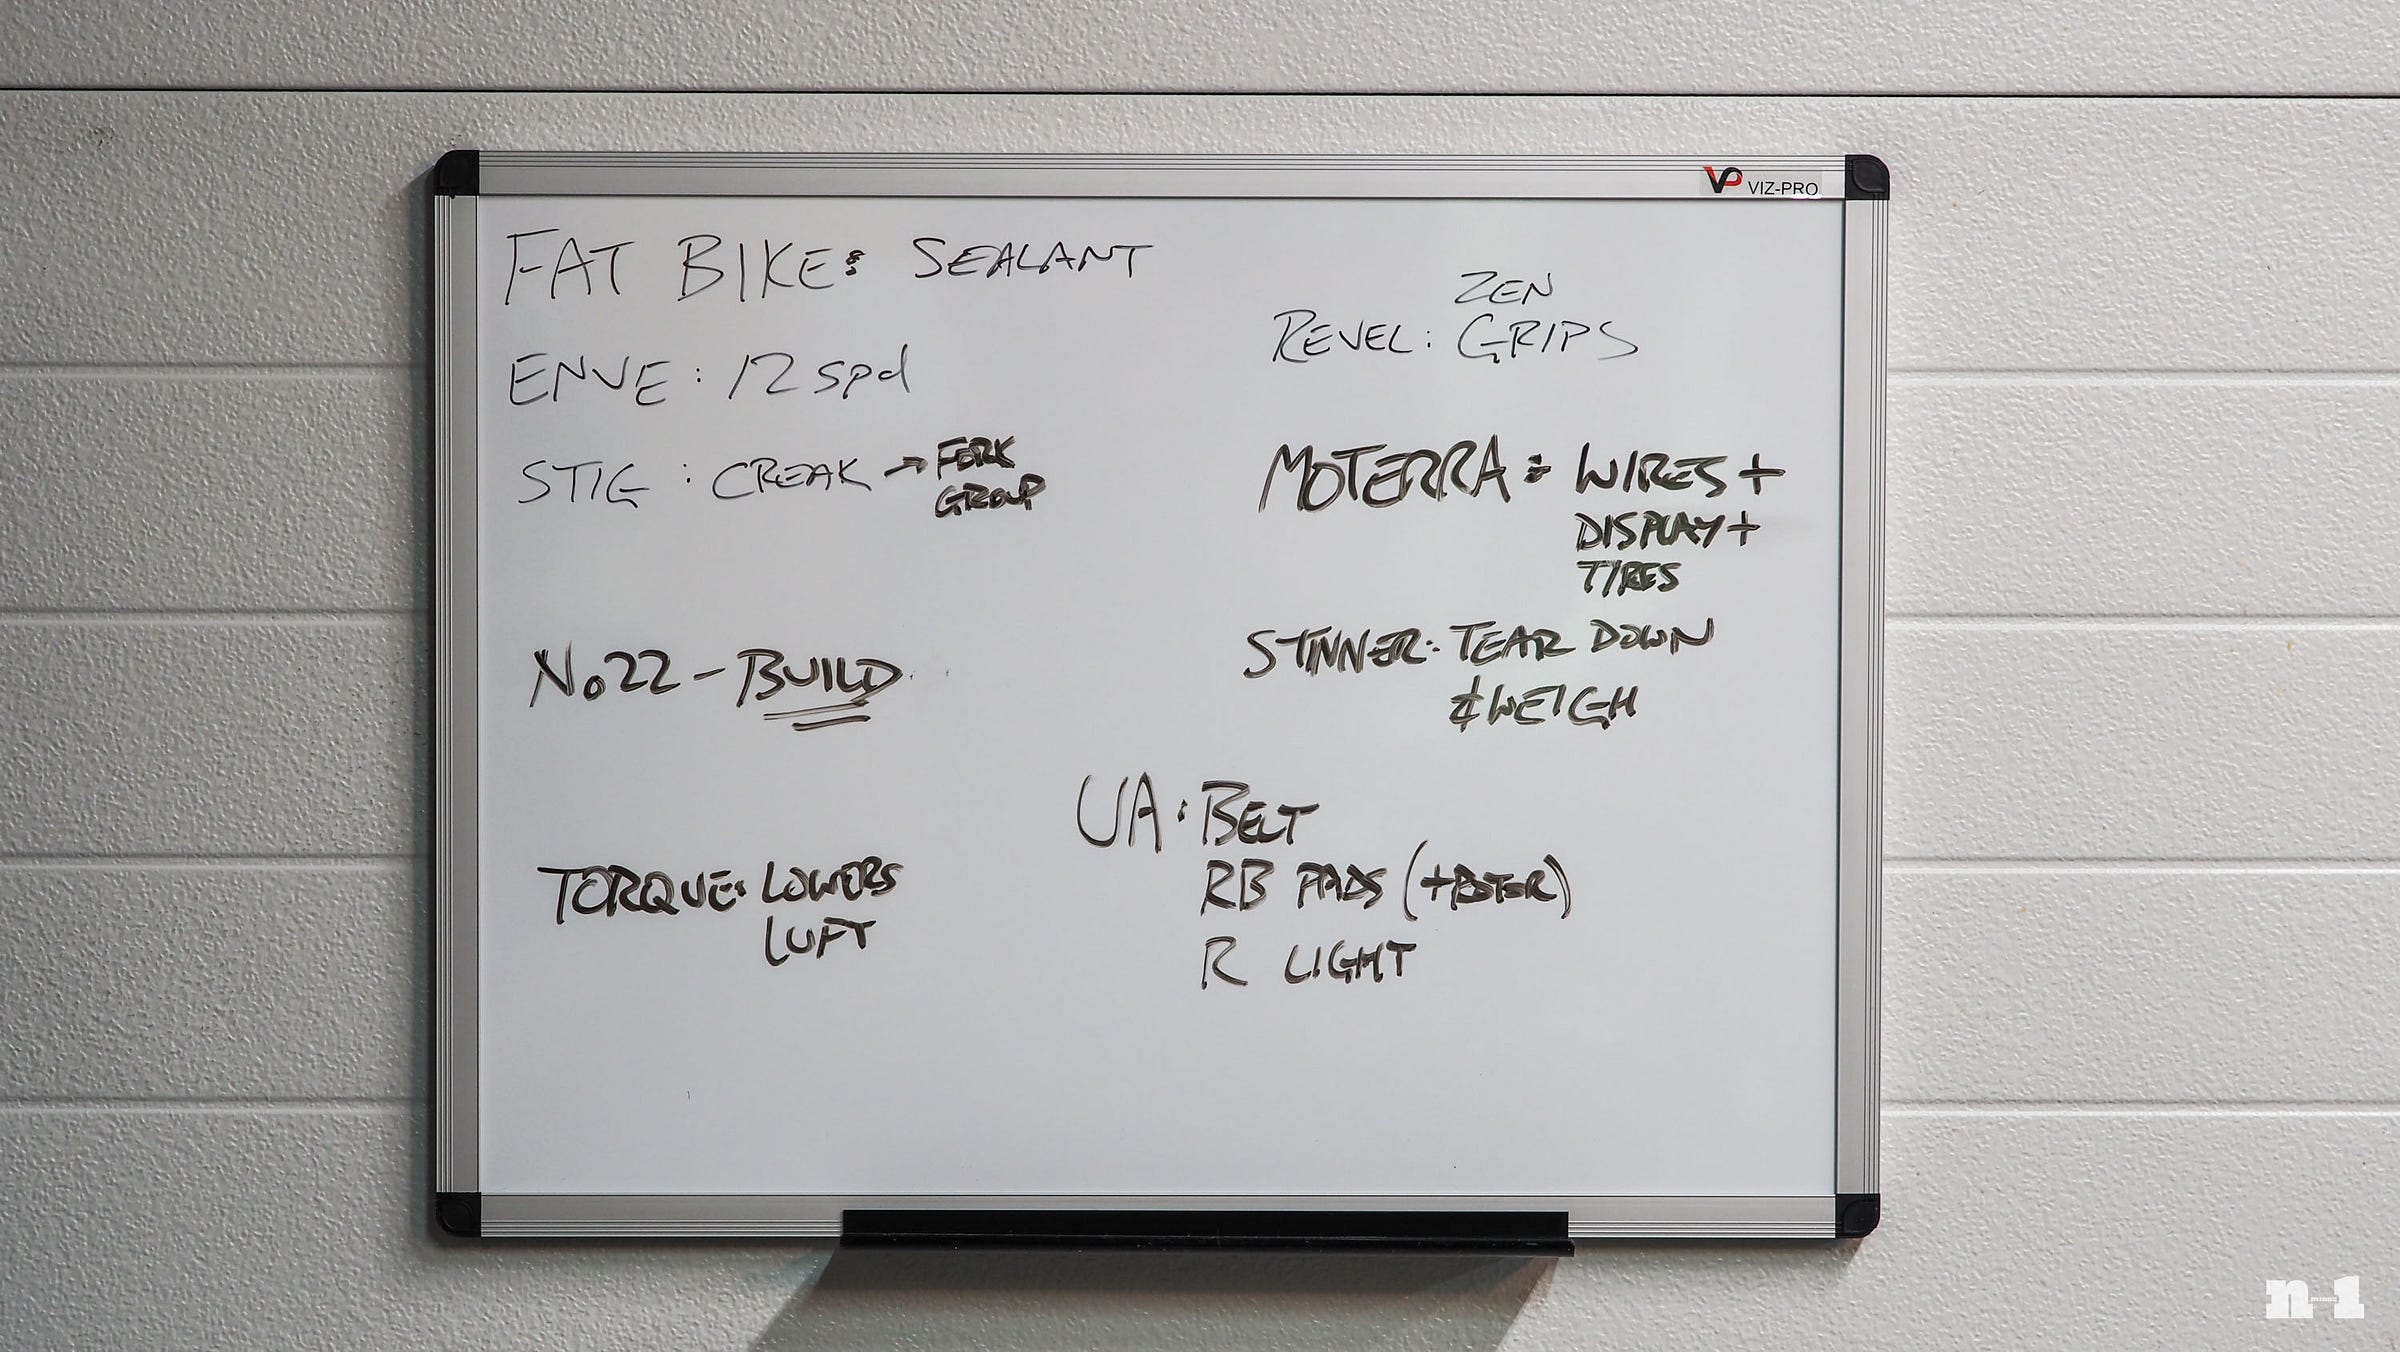 VP VIZ-PRO
FAT BIKE: SEALANT
ENVE: 12 spd
STIG: CREAK → FORK
GROUP
No22 - BUILD
TORQUE: LOWERS
LUFT
ZEN
REVEL: GRIPS
MOTERRA: WIRES +
DISPLAY +
TIRES
STINNER: TEAR DOWN
& WEIGH
UA: BELT
RB PADS
R LIGHT
n-1